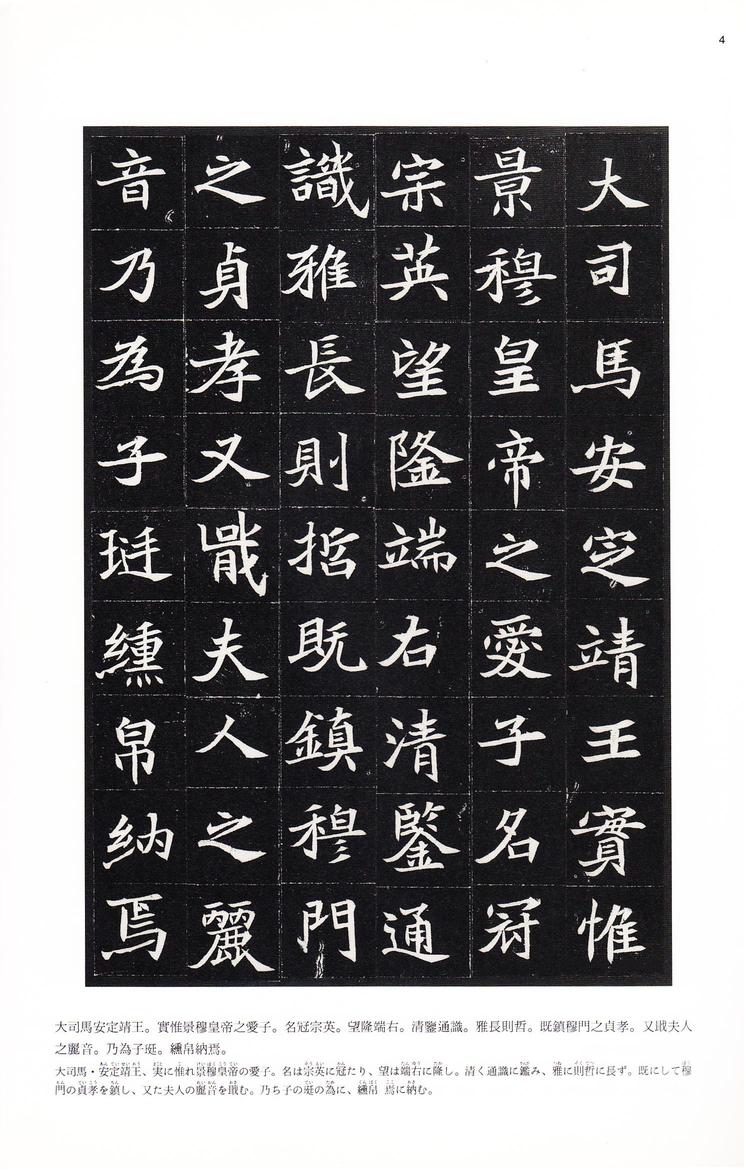 4
大司馬安定靖王實惟
景穆皇帝之愛子名冠
宗英望隆端右清鑒通
識雅長則哲既鎮穆門
之貞孝又戢夫人之麗
音乃為子珽纁帛納焉
大司馬安定靖王。實惟景穆皇帝之愛子。名冠宗英。望隆端右。清鑒通識。雅長則哲。既鎮穆門之貞孝。又戢夫人
之麗音。乃為子珽。纁帛納焉。
大司馬・安定靖王、実に惟れ景穆皇帝の愛子。名は宗英に冠たり、望は端右に隆し。清く通識に鑑み、雅に則哲に長ず。既にして穆
門の貞孝を鎮し、又た夫人の麗音を戢む。乃ち子の珽の為に、纁帛 焉に納む。